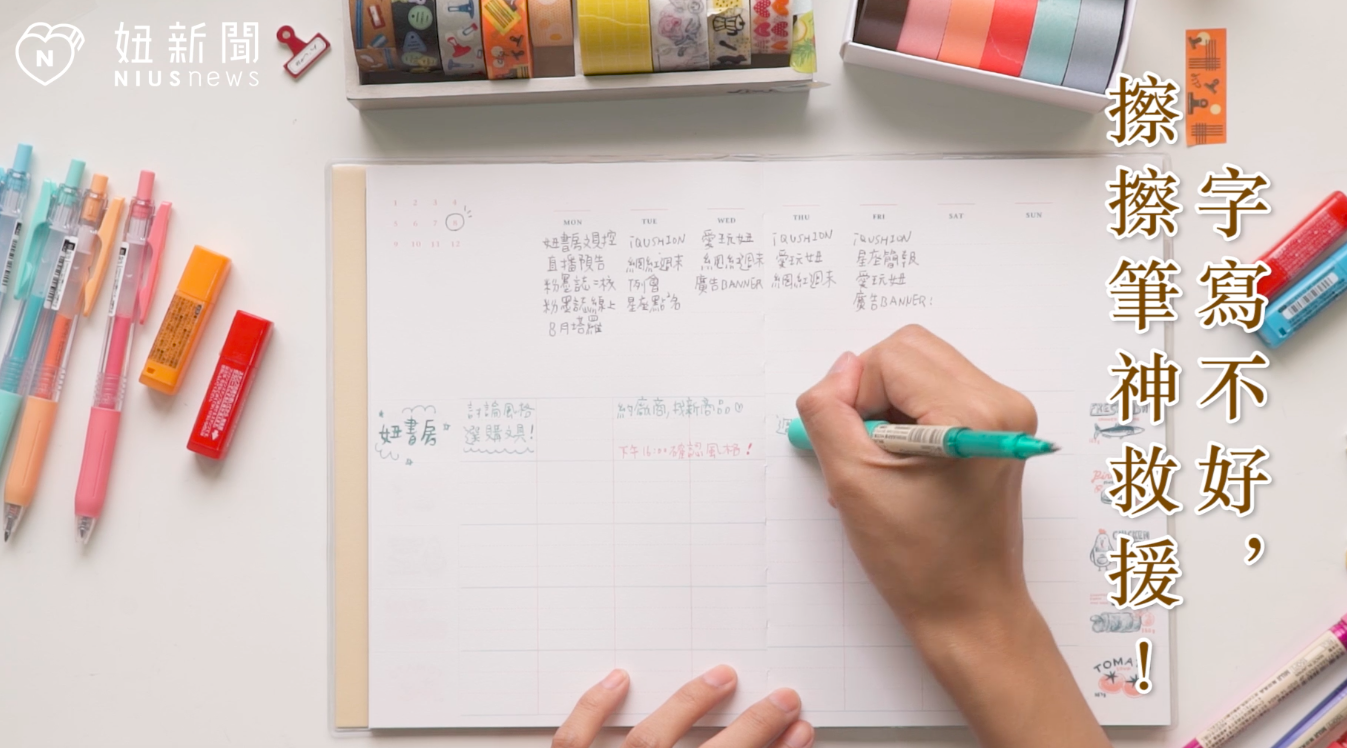 妞新聞
NIUSnews
字寫不好，
擦擦筆神救援！
1 2 3 4
5 6 7 8
9 10 11 12
MON TUE WED THU FRI SAT SUN
iQUSHION 愛玩妞 iQUSHION iQUSHION
直播預告 網紅週末 網紅週末 愛玩妞 星座簡報
例會 廣告BANNER 網紅週末 愛玩妞
星座點名 廣告BANNER:
8月塔羅
妞書房
討論風格
選購文具!
約廠商,找新商品♡
下午16:00確認風格!
CHICKEN
TOMA